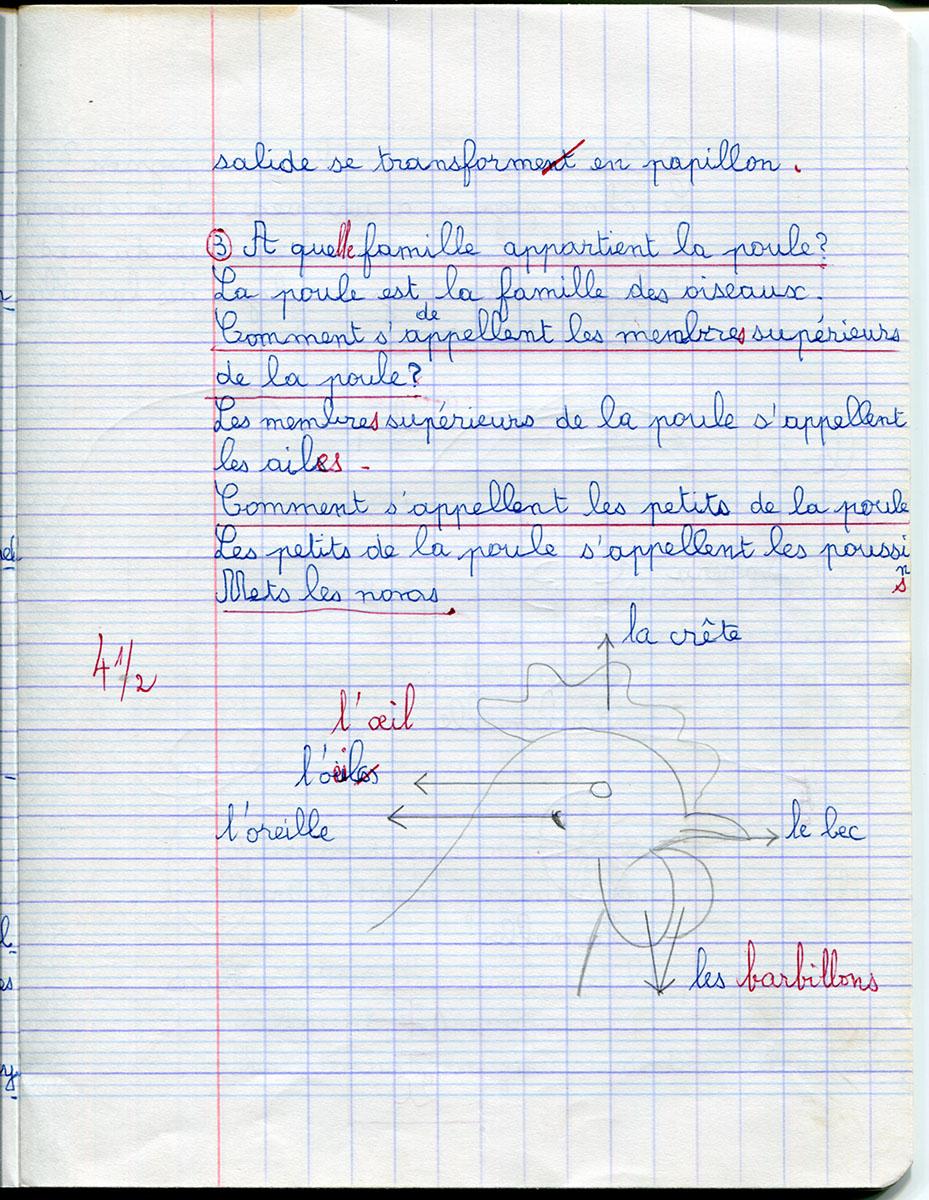 salide se transforment en papillon.
③ A quelle famille appartient la poule?
La poule est la famille des oiseaux.
de
Comment s'appellent les membres supérieurs
de la poule?
Les membres supérieurs de la poule s'appellent
les ailes.
Comment s'appellent les petits de la poule
Les petits de la poule s'appellent les poussi
ns
Mets les noms.
la crête
4 1/2
l'œil
l'oreille
le bec
les barbillons